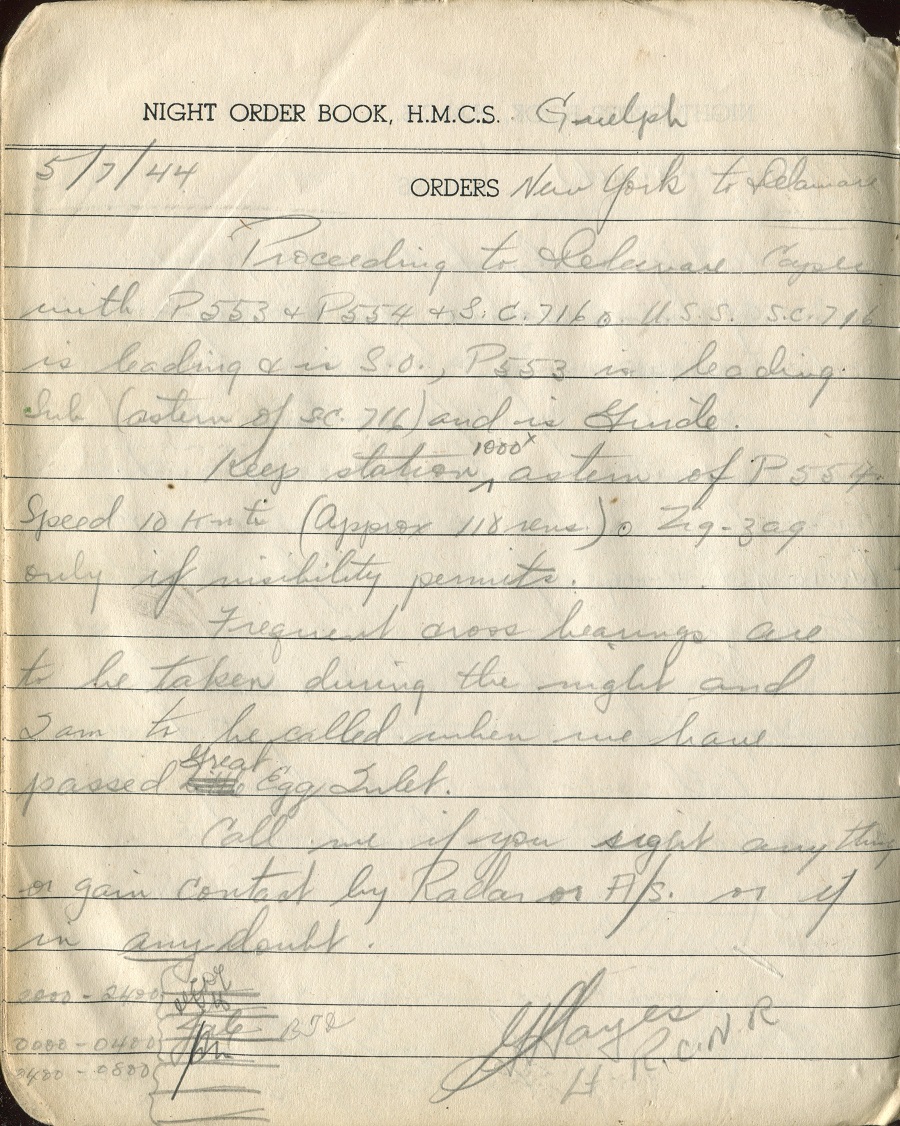 NIGHT ORDER BOOK, H.M.C.S. Guelph
5/7/44
ORDERS New York to Delaware
Proceeding to Delaware Capes
with P553 & P554 & S.C. 716. U.S.S. S.C. 716
is leading & is S.O., P553 is leading
Sub (astern of SC. 716) and is Guide.
1000x
Keep station astern of P554.
Speed 10 Knts (Approx 118 revs.). Zig-zag
only if visibility permits.
Frequent cross bearings are
to be taken during the night and
I am to be called when we have
Great
passed Egg Inlet.
Call me if you sight anything
or gain contact by Radar or A/S. or if
in any doubt.
2000 - 2400
0000 - 0400
0400 - 0800
GHayes
Lt R.C.N.R